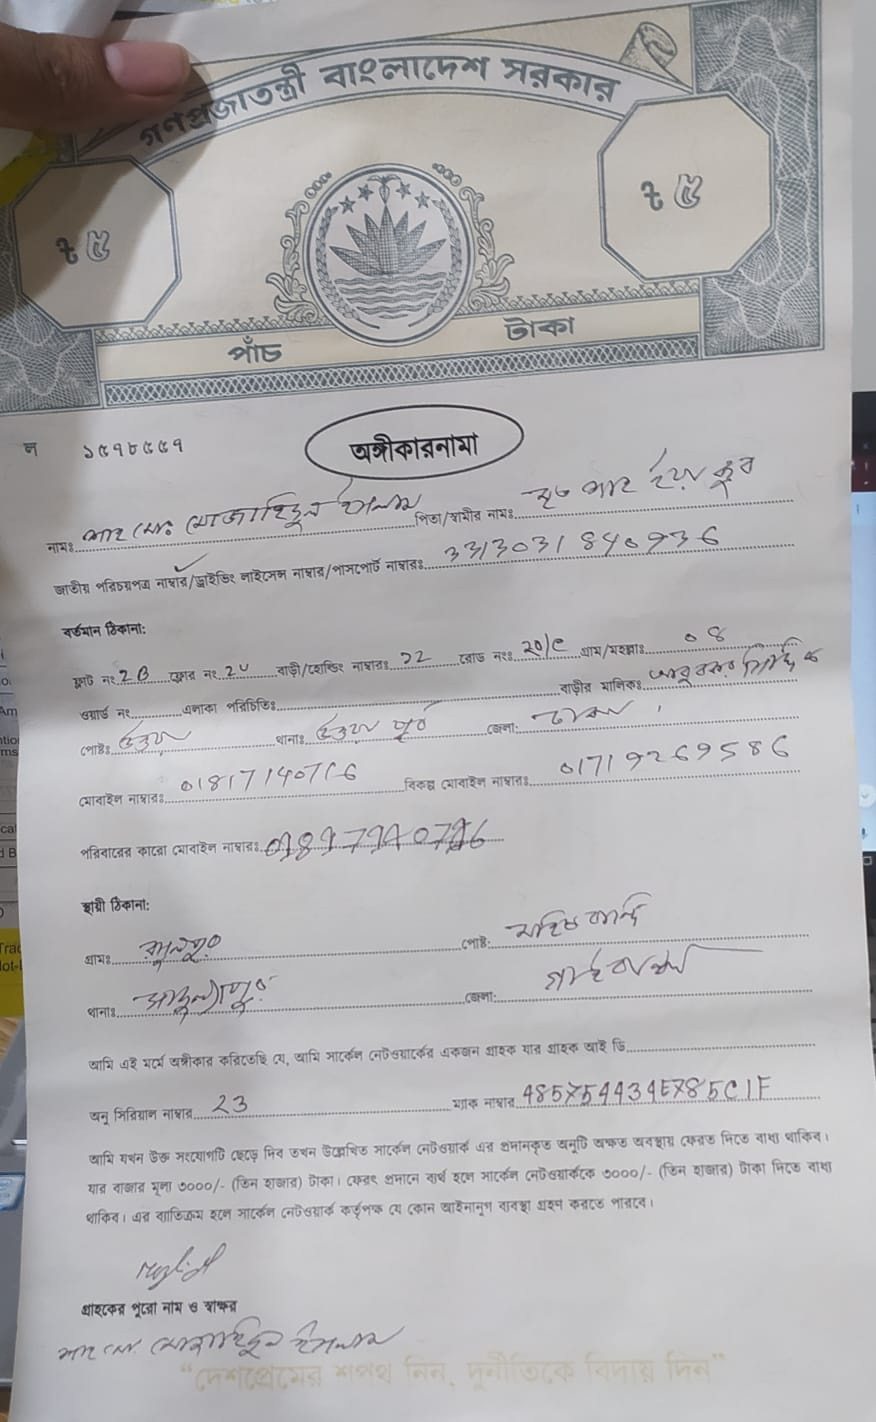 গণপ্রজাতন্ত্রী বাংলাদেশ সরকার
ট ৫ ট ৫
পাঁচ টাকা
ন ১৫৭৮৫৫৭
অঙ্গীকারনামা
নামঃ শাহ মোঃ মোজাহিদুল ইসলাম পিতা/স্বামীর নামঃ মৃত শাহ
জাতীয় পরিচয়পত্র নাম্বার/ড্রাইভিং লাইসেন্স নাম্বার/পাসপোর্ট নাম্বারঃ
বর্তমান ঠিকানা:
ফ্লাট নং 2B ফ্লোর নং বাড়ী/হোল্ডিং নাম্বারঃ ১২ রোড নংঃ গ্রাম/মহল্লাঃ ০৪
ওয়ার্ড নং এলাকা পরিচিতিঃ বাড়ীর মালিকঃ আবুবকর সিদ্দিক
পোষ্টঃ উত্তরা থানাঃ উত্তরা পূর্ব জেলা: ঢাকা
মোবাইল নাম্বারঃ 01817140716 বিকল্প মোবাইল নাম্বারঃ 01719269586
পরিবারের কারো মোবাইল নাম্বারঃ
স্থায়ী ঠিকানা:
গ্রামঃ পোষ্ট:
থানাঃ জেলা: গাইবান্ধা
আমি এই মর্মে অঙ্গীকার করিতেছি যে, আমি সার্কেল নেটওয়ার্কের একজন গ্রাহক যার গ্রাহক আই ডি
অনু সিরিয়াল নাম্বার 23 ম্যাক নাম্বার 485754434E785C1F
আমি যখন উক্ত সংযোগটি ছেড়ে দিব তখন উল্লেখিত সার্কেল নেটওয়ার্ক এর প্রদানকৃত অনুটি অক্ষত অবস্থায় ফেরত দিতে বাধ্য থাকিব।
যার বাজার মূল্য ৩০০০/- (তিন হাজার) টাকা। ফেরৎ প্রদানে ব্যর্থ হলে সার্কেল নেটওয়ার্ককে ৩০০০/- (তিন হাজার) টাকা দিতে বাধ্য
থাকিব। এর ব্যতিক্রম হলে সার্কেল নেটওয়ার্ক কর্তৃপক্ষ যে কোন আইনানুগ ব্যবস্থা গ্রহণ করতে পারবে।
গ্রাহকের পুরো নাম ও স্বাক্ষর
শাহ মোঃ মোজাহিদুল ইসলাম
“দেশপ্রেমের শপথ নিন, দুর্নীতিকে বিদায় দিন”